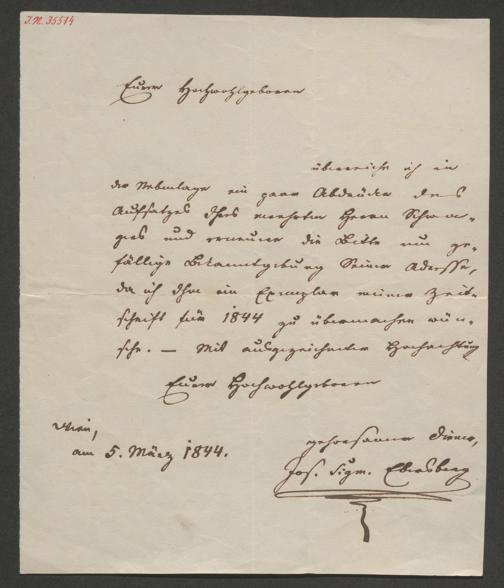 I.N. 35514
Euer Hochwohlgeboren
überreiche ich in
der Nebenlage ein paar Abdrücke des
Aufsatzes Ihres verehrten Herrn Schwa-
gers und erneuere die Bitte um ge-
fällige Bekanntgebung Seiner Adresse,
da ich Ihm ein Exemplar meiner Zeit-
schrift für 1844 zu übermachen wün-
sche. — Mit ausgezeichneter Hochachtung
Euer Hochwohlgeboren
Wien,
am 5. März 1844.
gehorsamer Diener,
Jos. Sigm. Ebersberg